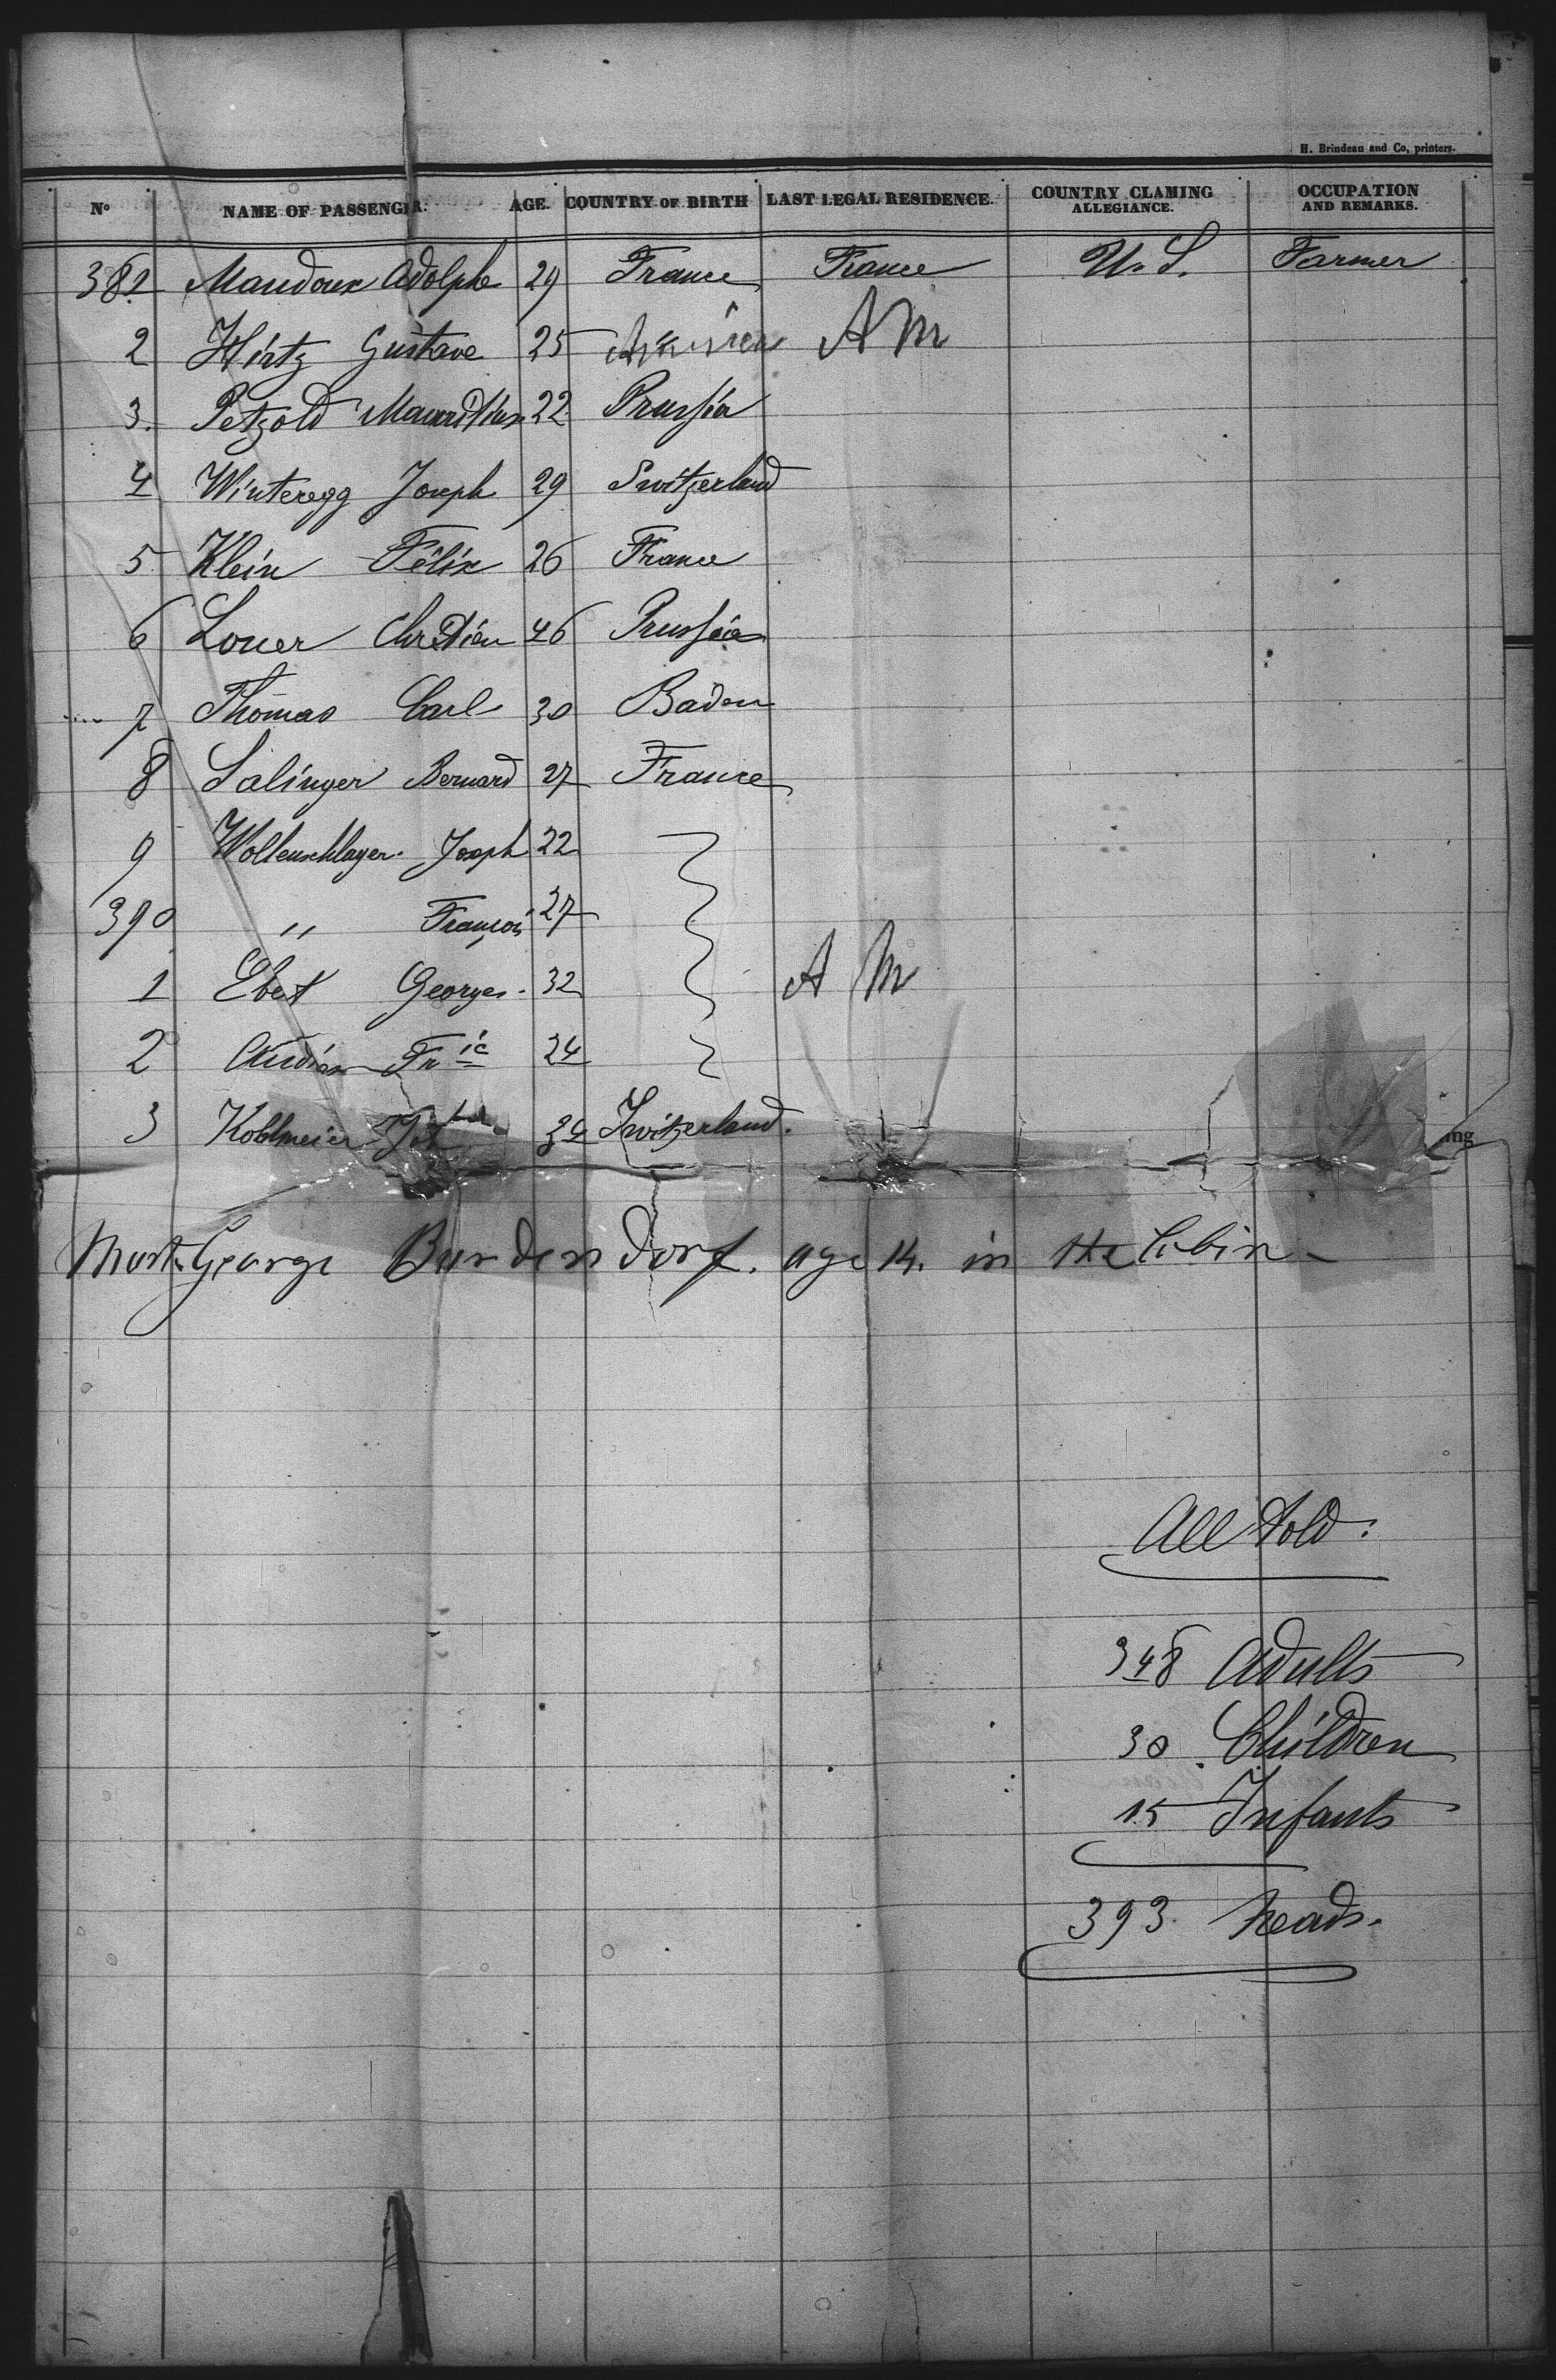 H. Brindeau and Co, printers.
No NAME OF PASSENGER. AGE. COUNTRY OF BIRTH LAST LEGAL RESIDENCE. COUNTRY CLAMING ALLEGIANCE. OCCUPATION AND REMARKS.
381 Maudoux Adolphe 29 France France U. S. Farmer
2 Hirtz Gustave 25 America A M
3. Petzold 22 Prussia
4 Winteregg Joseph 29 Switzerland
5 Klein Félix 26 France
6 Louer Chrétien 46 Prussia
7 Thomas Carl 30 Baden
8 Salinger Bernard 27 France
9 Wollenschlager Joseph 22
390 " François 27
1 Ebert Georges 32 A M
2 Fr ic 24
3 Kohlmeier 34 Switzerland.
ing
Mast. George Burdendorf. age 14. in the Cabin
All told:
348 Adults
30 Children
15 Infants
393 heads.